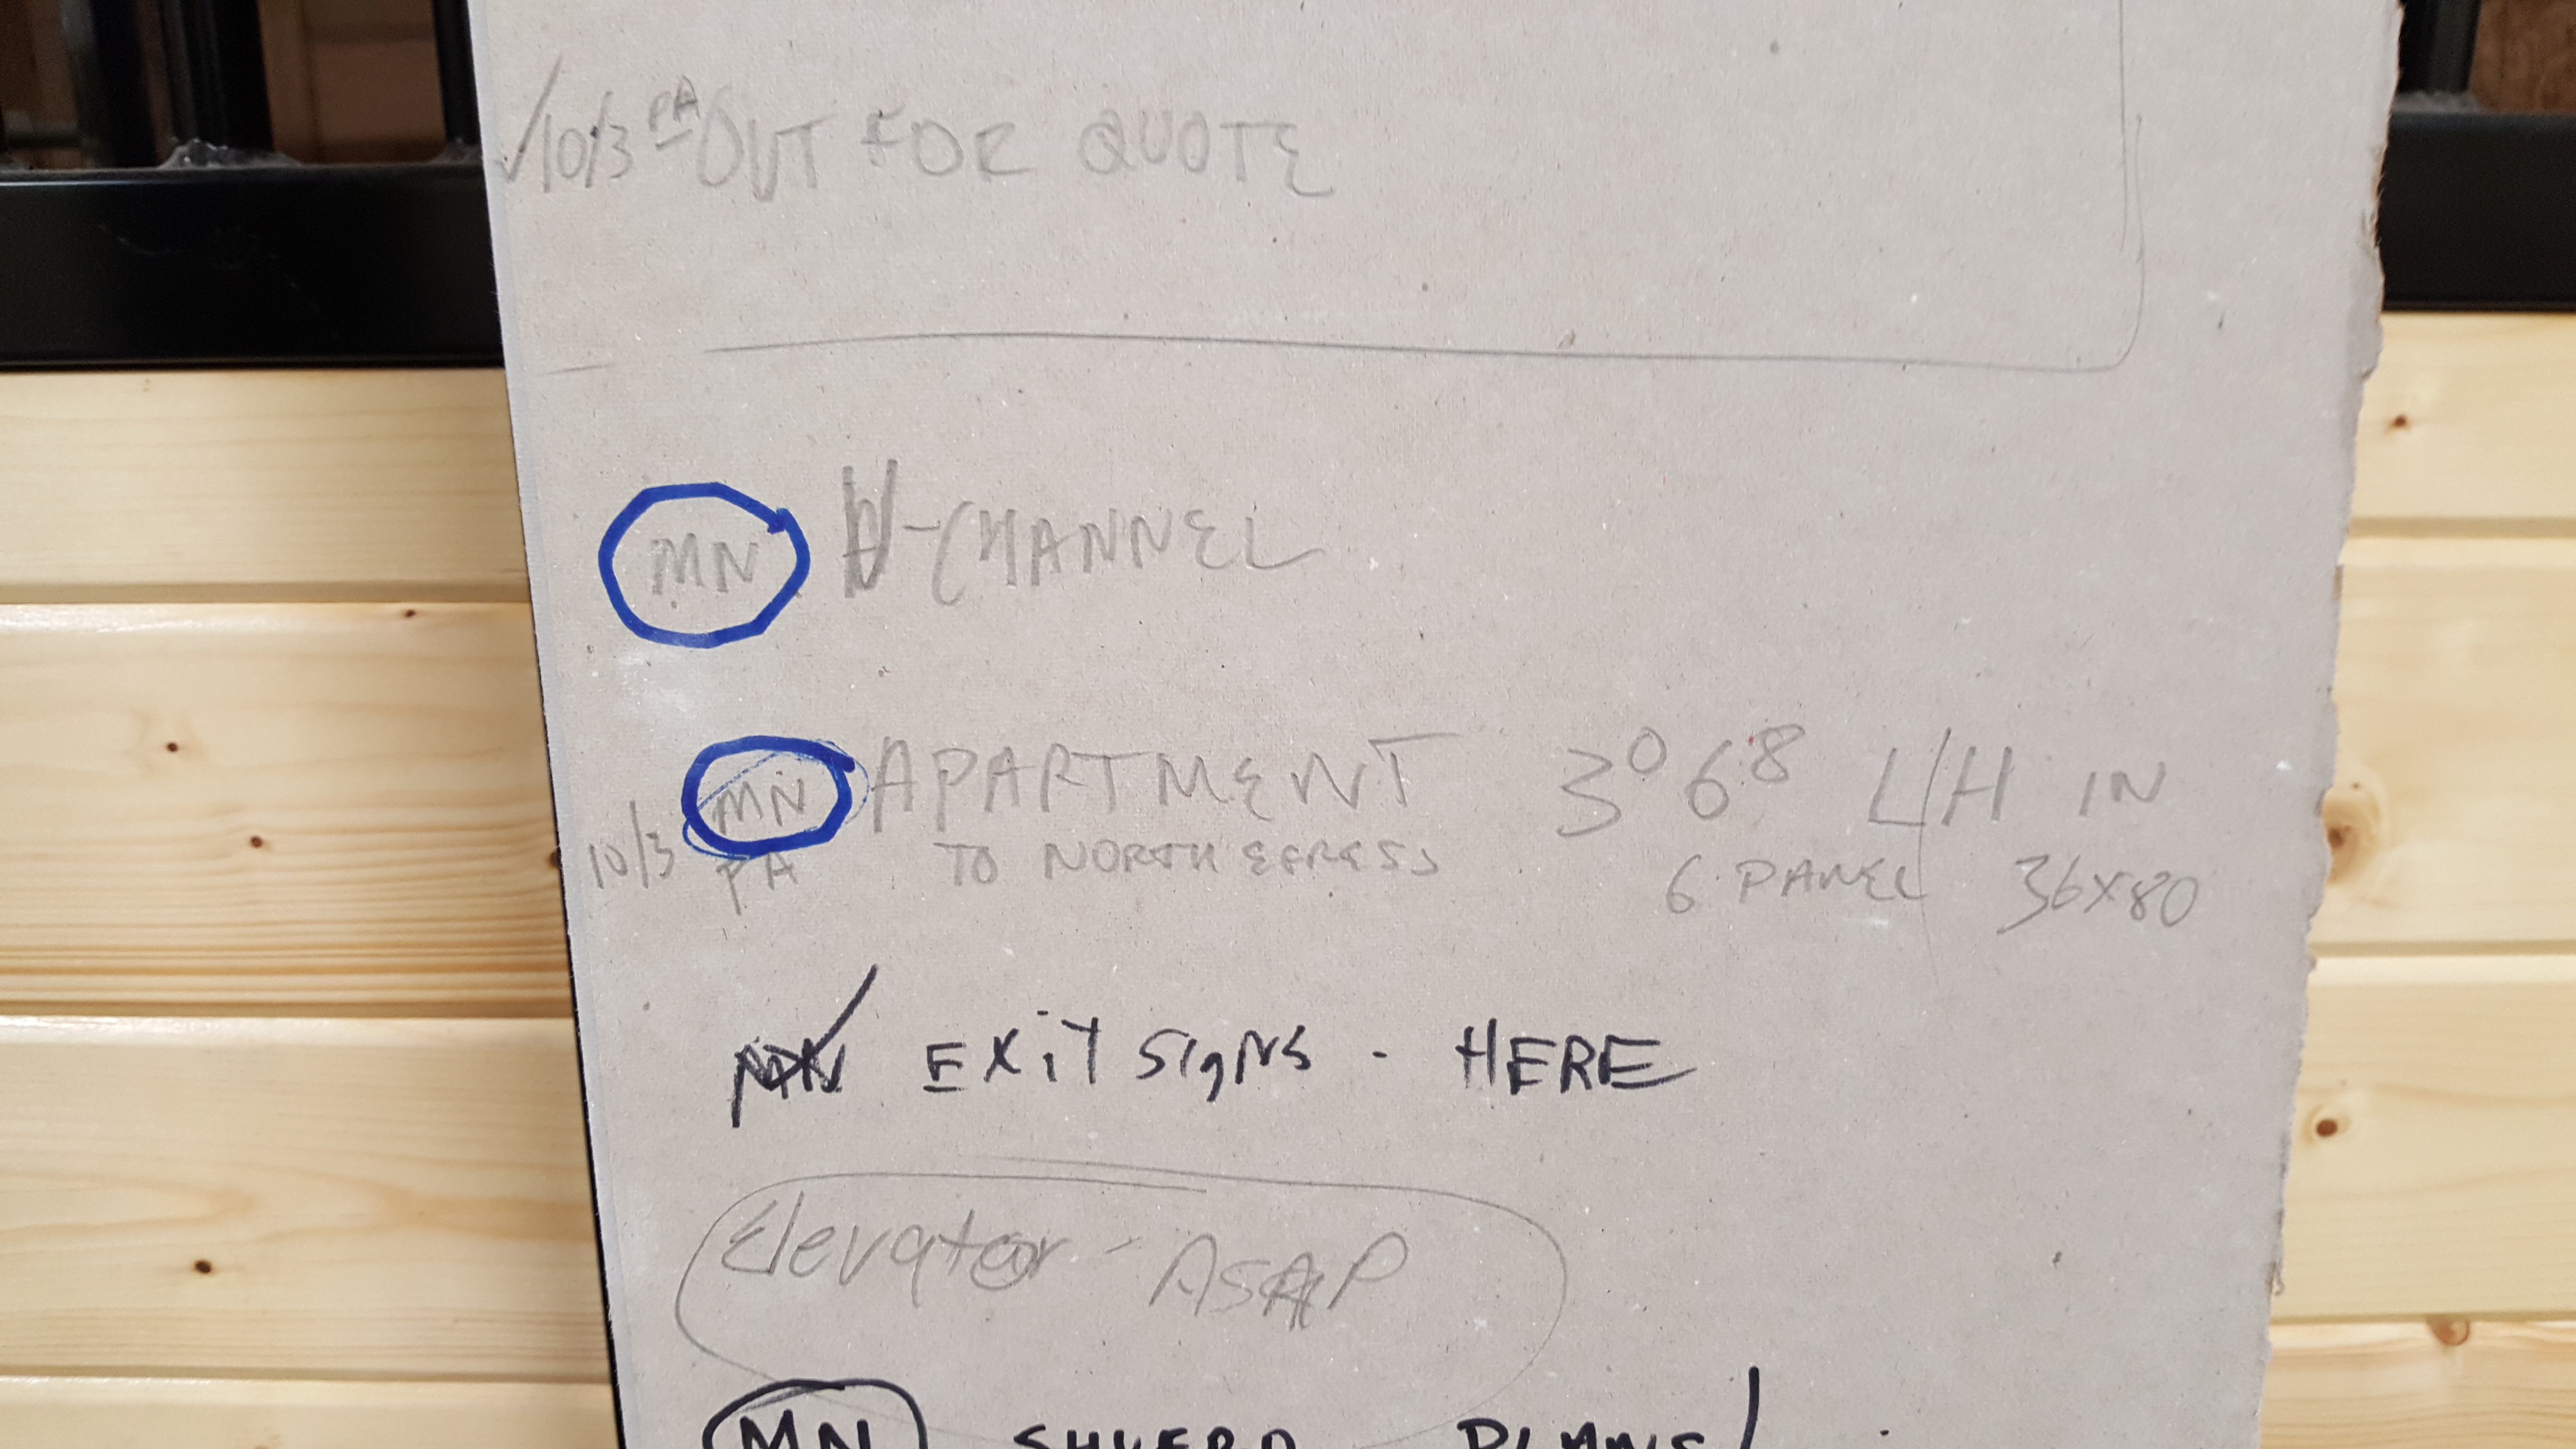 ✓10/3 PA OUT FOR QUOTE
MN -CHANNEL
MN APARTMENT 3⁰ 6⁸ LH IN
10/3 PA TO NORTH EGRESS 6 PANEL 36X80
MN EXiT SigNS - HERE
Elevator - ASAP
MN PLANS/